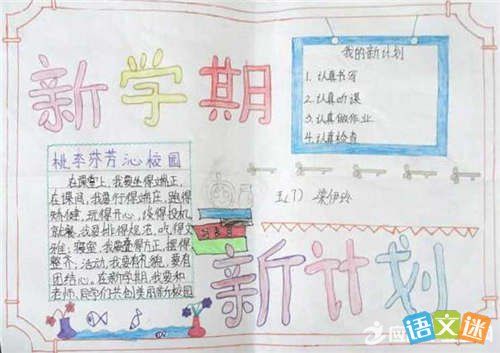 新学期
我的新计划
1.认真书写
2.认真听课
3.认真做作业
4.认真检查
桃李芬芳沁校园
在课堂上,我要坐得端正,
在课间,我要行得端庄,跑得
矫健,玩得开心,谈得投机
就餐,我要排得规范,吃得文
雅,寝室,我要叠得方正,摆得
整齐,活动,我要有礼貌,要有
团结心。在新学期,我要和
老师、同学们共创美丽的校园
五(7) 梁伊玲
新计划
语文迷
网